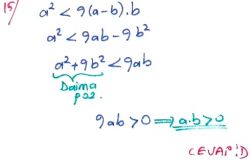 15/
a² < 9(a-b).b
a² < 9ab - 9b²
a² + 9b² < 9ab
Daima
poz.
9ab > 0 ⟹ a.b > 0
CEVAP: D